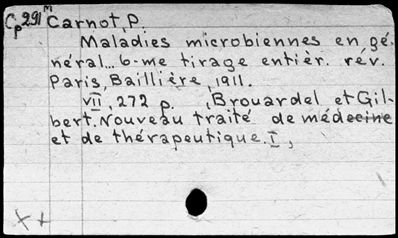 Cp291M Carnot, P.
Maladies microbiennes en gé-
néral... 6-me tirage entièr. rév.
Paris, Baillière, 1911.
VII, 272 p. (Brouardel et Gil-
bert. Nouveau traité de médecine
et de thérapeutique. I,